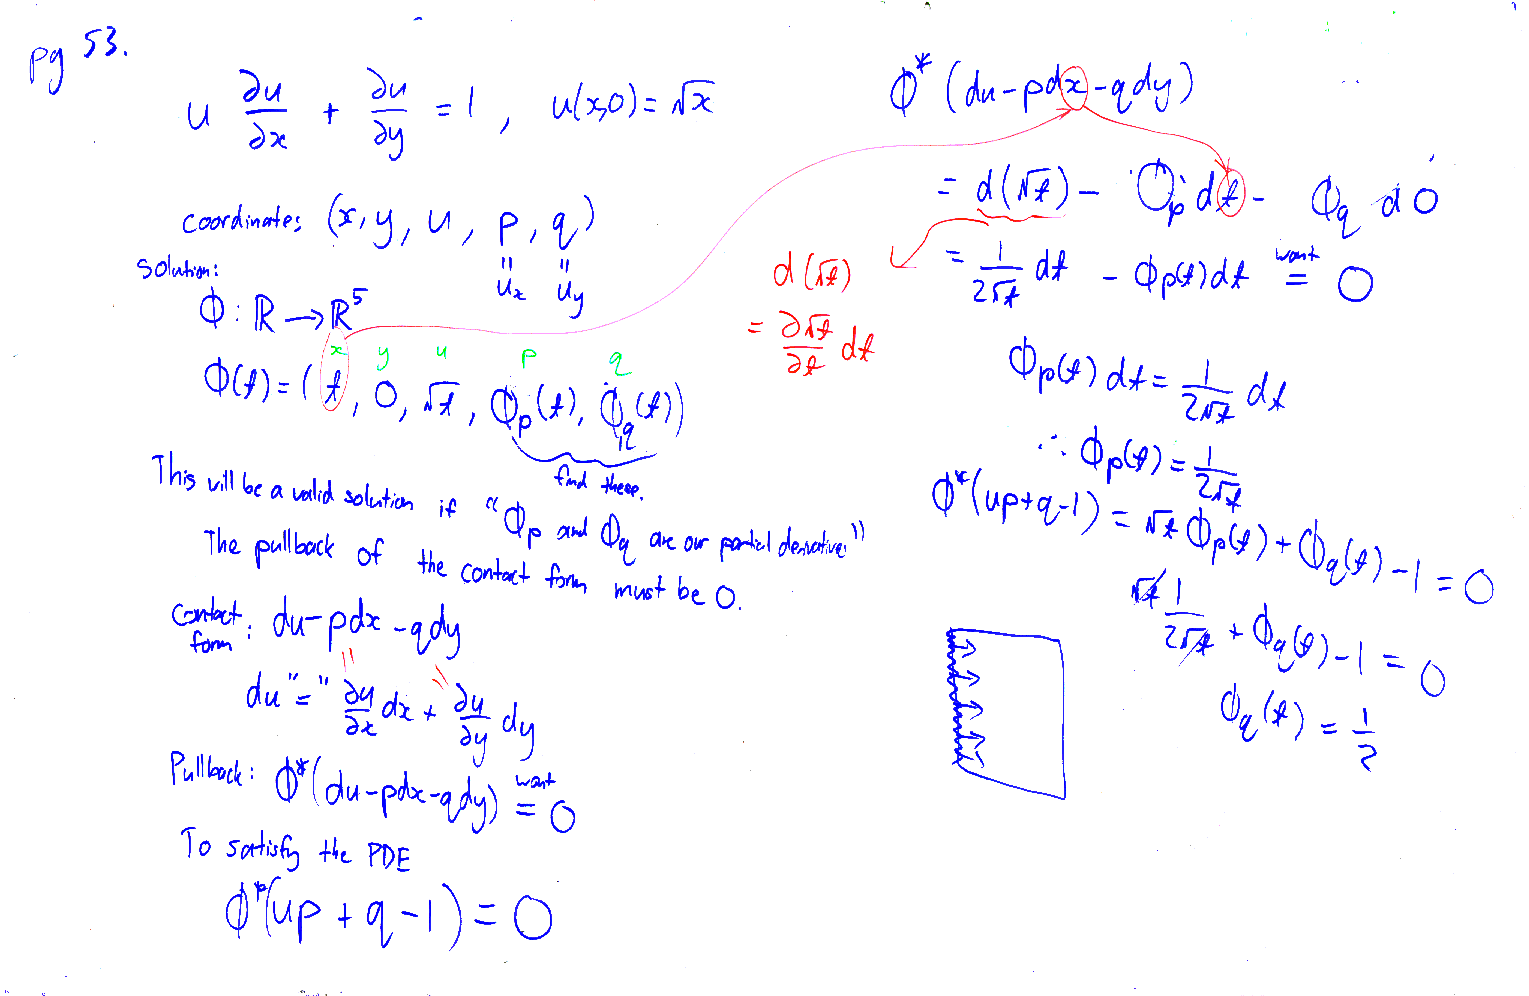 pg 53.
u ∂u/∂x + ∂u/∂y = 1, u(x,0) = √x
coordinates (x, y, u, p, q)
" "
u_x u_y
Solution:
ϕ : ℝ → ℝ⁵
x y u p q
ϕ(t) = (t, 0, √t, ϕ_p(t), ϕ_q(t))
find these.
This will be a valid solution if "ϕ_p and ϕ_q are our partial derivatives"
The pullback of the contact form must be 0.
Contact form: du - pdx - qdy
" "
du "=" ∂u/∂x dx + ∂u/∂y dy
Pullback: ϕ*(du - pdx - qdy) want = 0
To satisfy the PDE
ϕ*(up + q - 1) = 0
ϕ*(du - pdx - qdy)
= d(√t) - ϕ_p dt - ϕ_q d0
= 1/(2√t) dt - ϕ_p(t)dt want = 0
d(√t)
= ∂√t/∂t dt
ϕ_p(t) dt = 1/(2√t) dt
∴ ϕ_p(t) = 1/(2√t)
ϕ*(up+q-1) = √t ϕ_p(t) + ϕ_q(t) - 1 = 0
√t 1/(2√t) + ϕ_q(t) - 1 = 0
ϕ_q(t) = 1/2